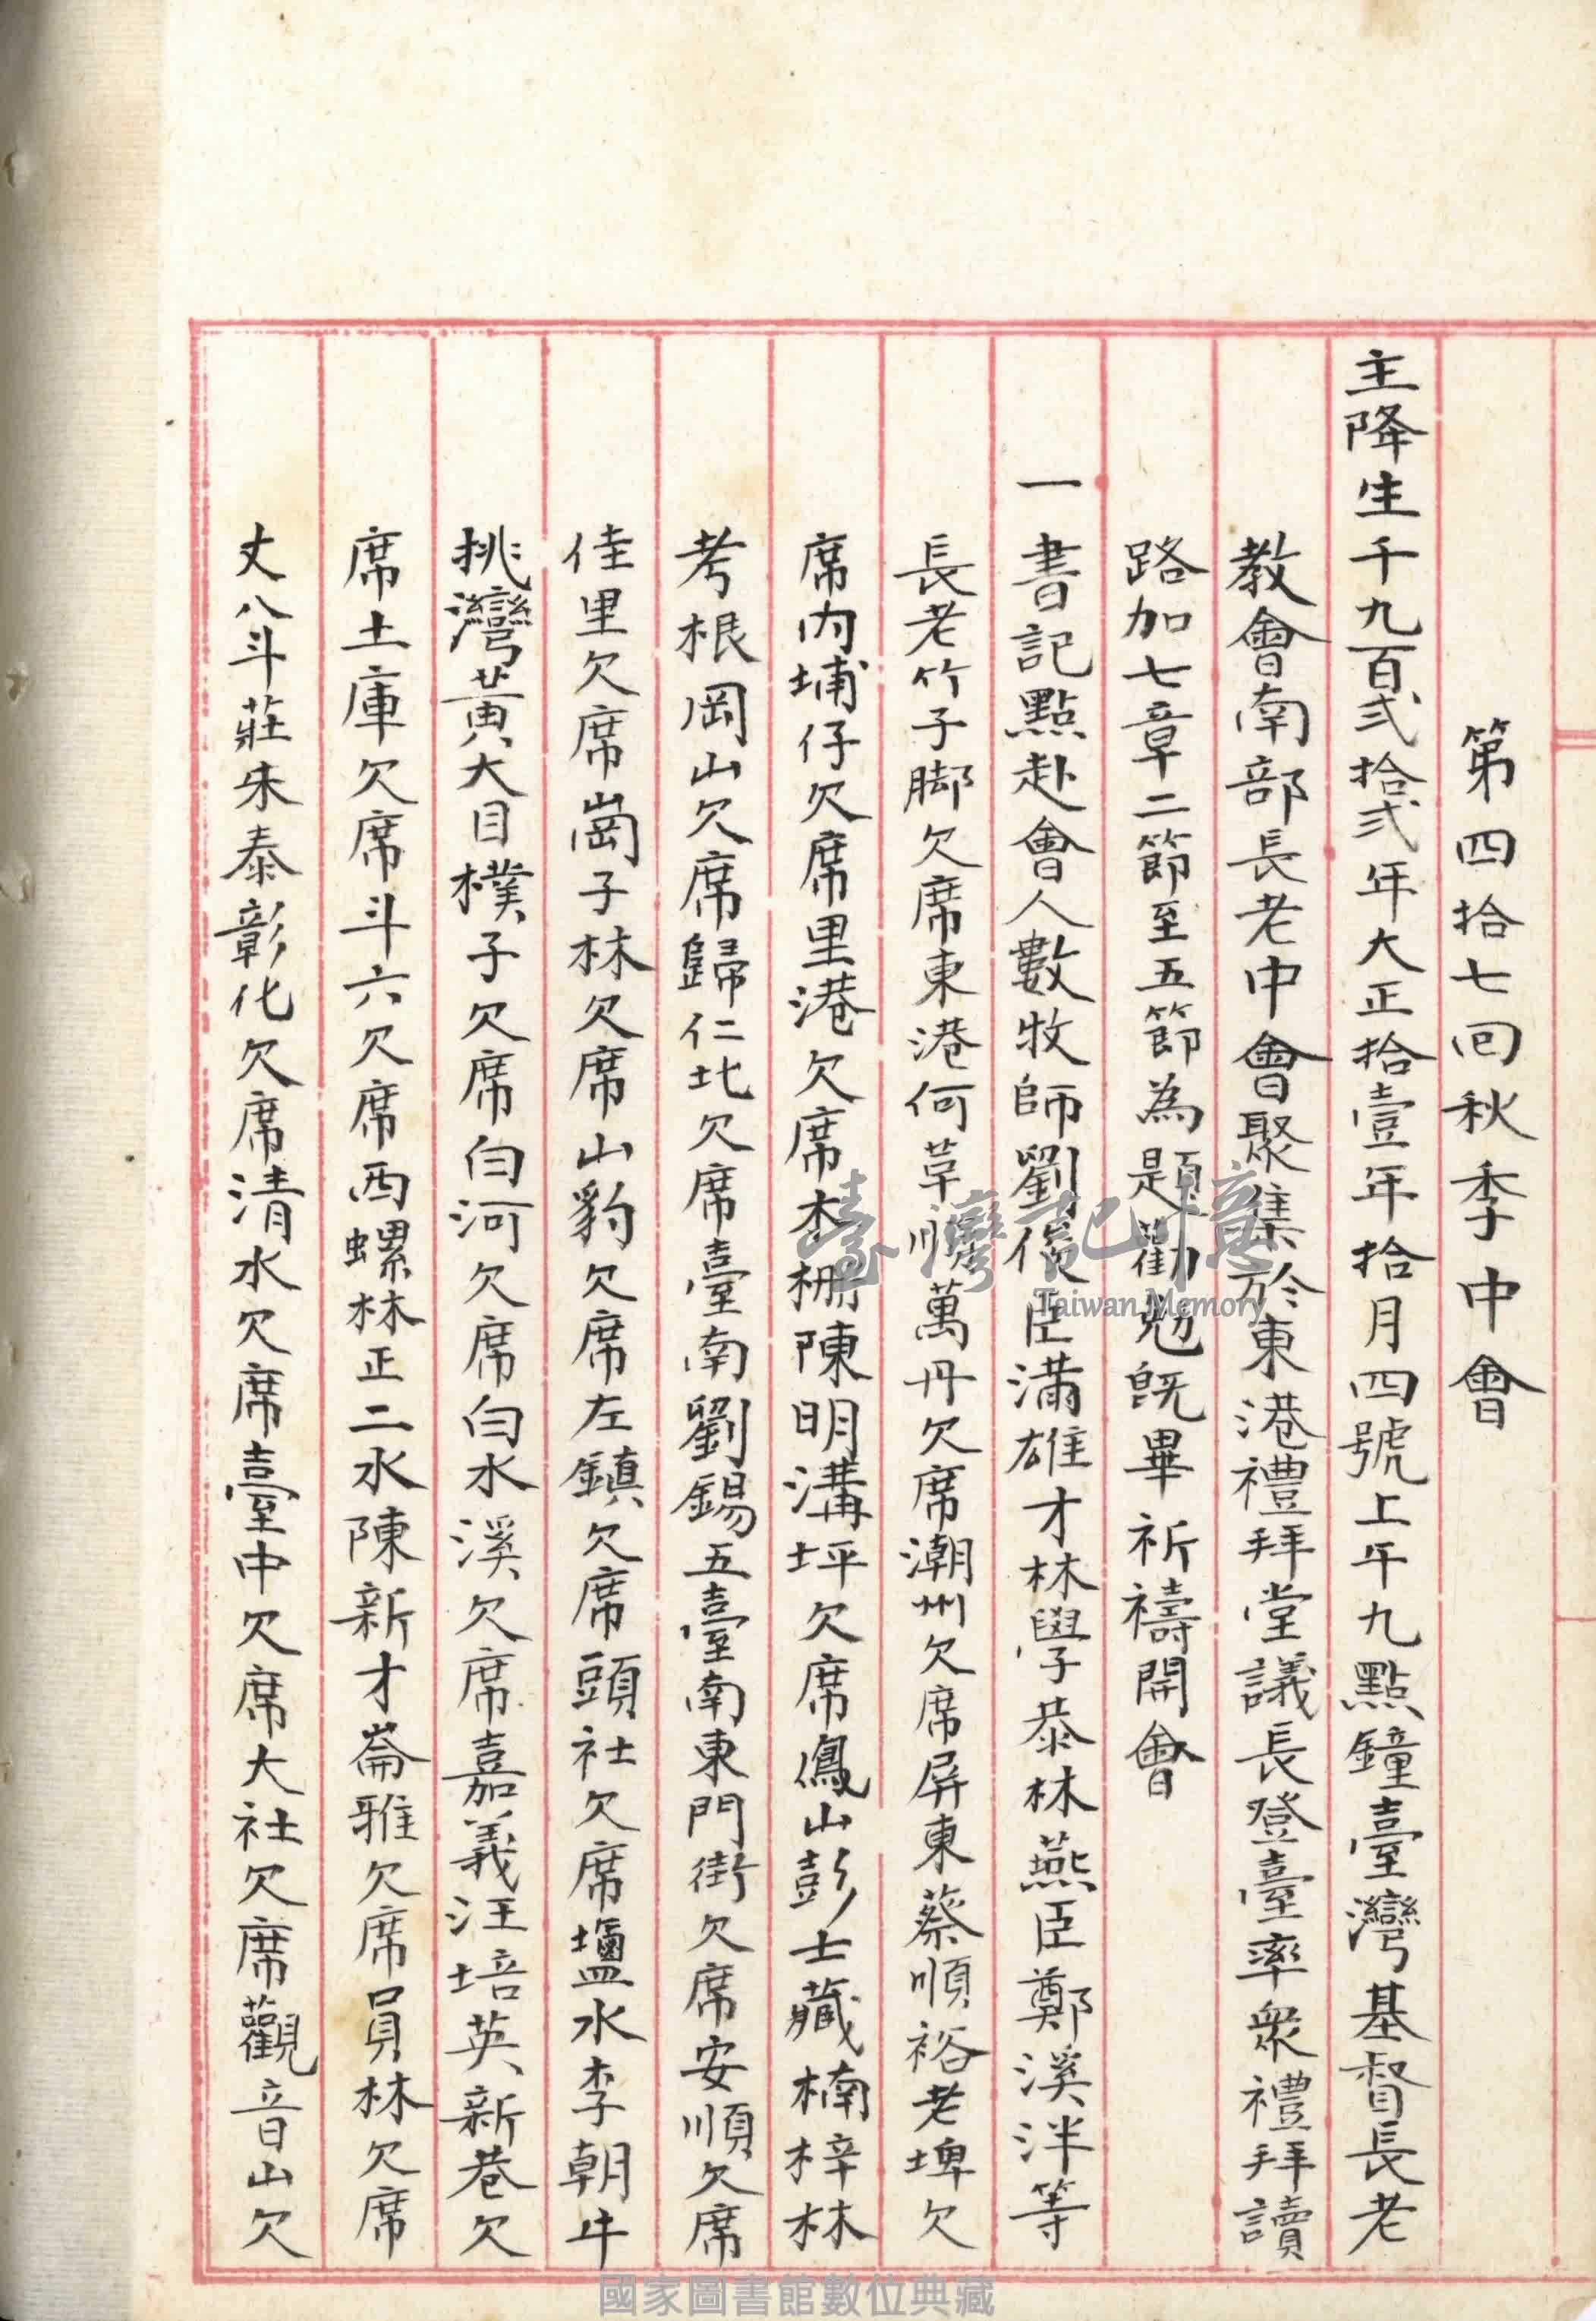 第四拾七回秋季中會
主降生千九百弍拾弍年大正拾壹年拾月四號上午九點鐘臺灣基督長老
教會南部長老中會聚集於東港禮拜堂議長登臺率衆禮拜讀
路加七章二節至五節為題勸勉既畢祈禱開會
一書記點赴會人數牧師劉俊臣滿雄才林學恭林燕臣鄭溪泮等
長老竹子脚欠席東港何草順萬丹欠席潮州欠席屏東蔡順裕老埤欠
席內埔仔欠席里港欠席木柵陳明溝坪欠席鳳山彭士藏楠梓林
考根岡山欠席歸仁北欠席臺南劉錫五臺南東門街欠席安順欠席
佳里欠席崗子林欠席山豹欠席左鎮欠席頭社欠席塩水李朝牛
挑灣黃大目樸子欠席白河欠席白水溪欠席嘉義汪培英新巷欠
席土庫欠席斗六欠席西螺林正二水陳新才崙雅欠席員林欠席
丈八斗莊朱泰彰化欠席清水欠席臺中欠席大社欠席觀音山欠
臺灣記憶
Taiwan Memory
國家圖書館數位典藏